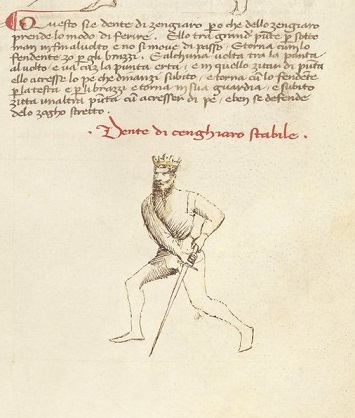 Questo sie dente di zengiaro po che dello zengiaro
prende lo modo di ferire. Ello tra grand punte per sotto
man infin al volto e no si move di passo. E torna cum lo
fendente zo per gli brazzi. E alchuna volta tra la punta
al volto. e va cum la punta erta, e in quello zitar di punta
ello acresse lo pe che dinanzi subito, e torna cum lo fendente
per la testa e per li brazzi e torna in sua guardia, e subito
zitta un altra punta cum acresser di pe, e ben se defende
delo zogho stretto.
Dente di cenghiaro stabile.